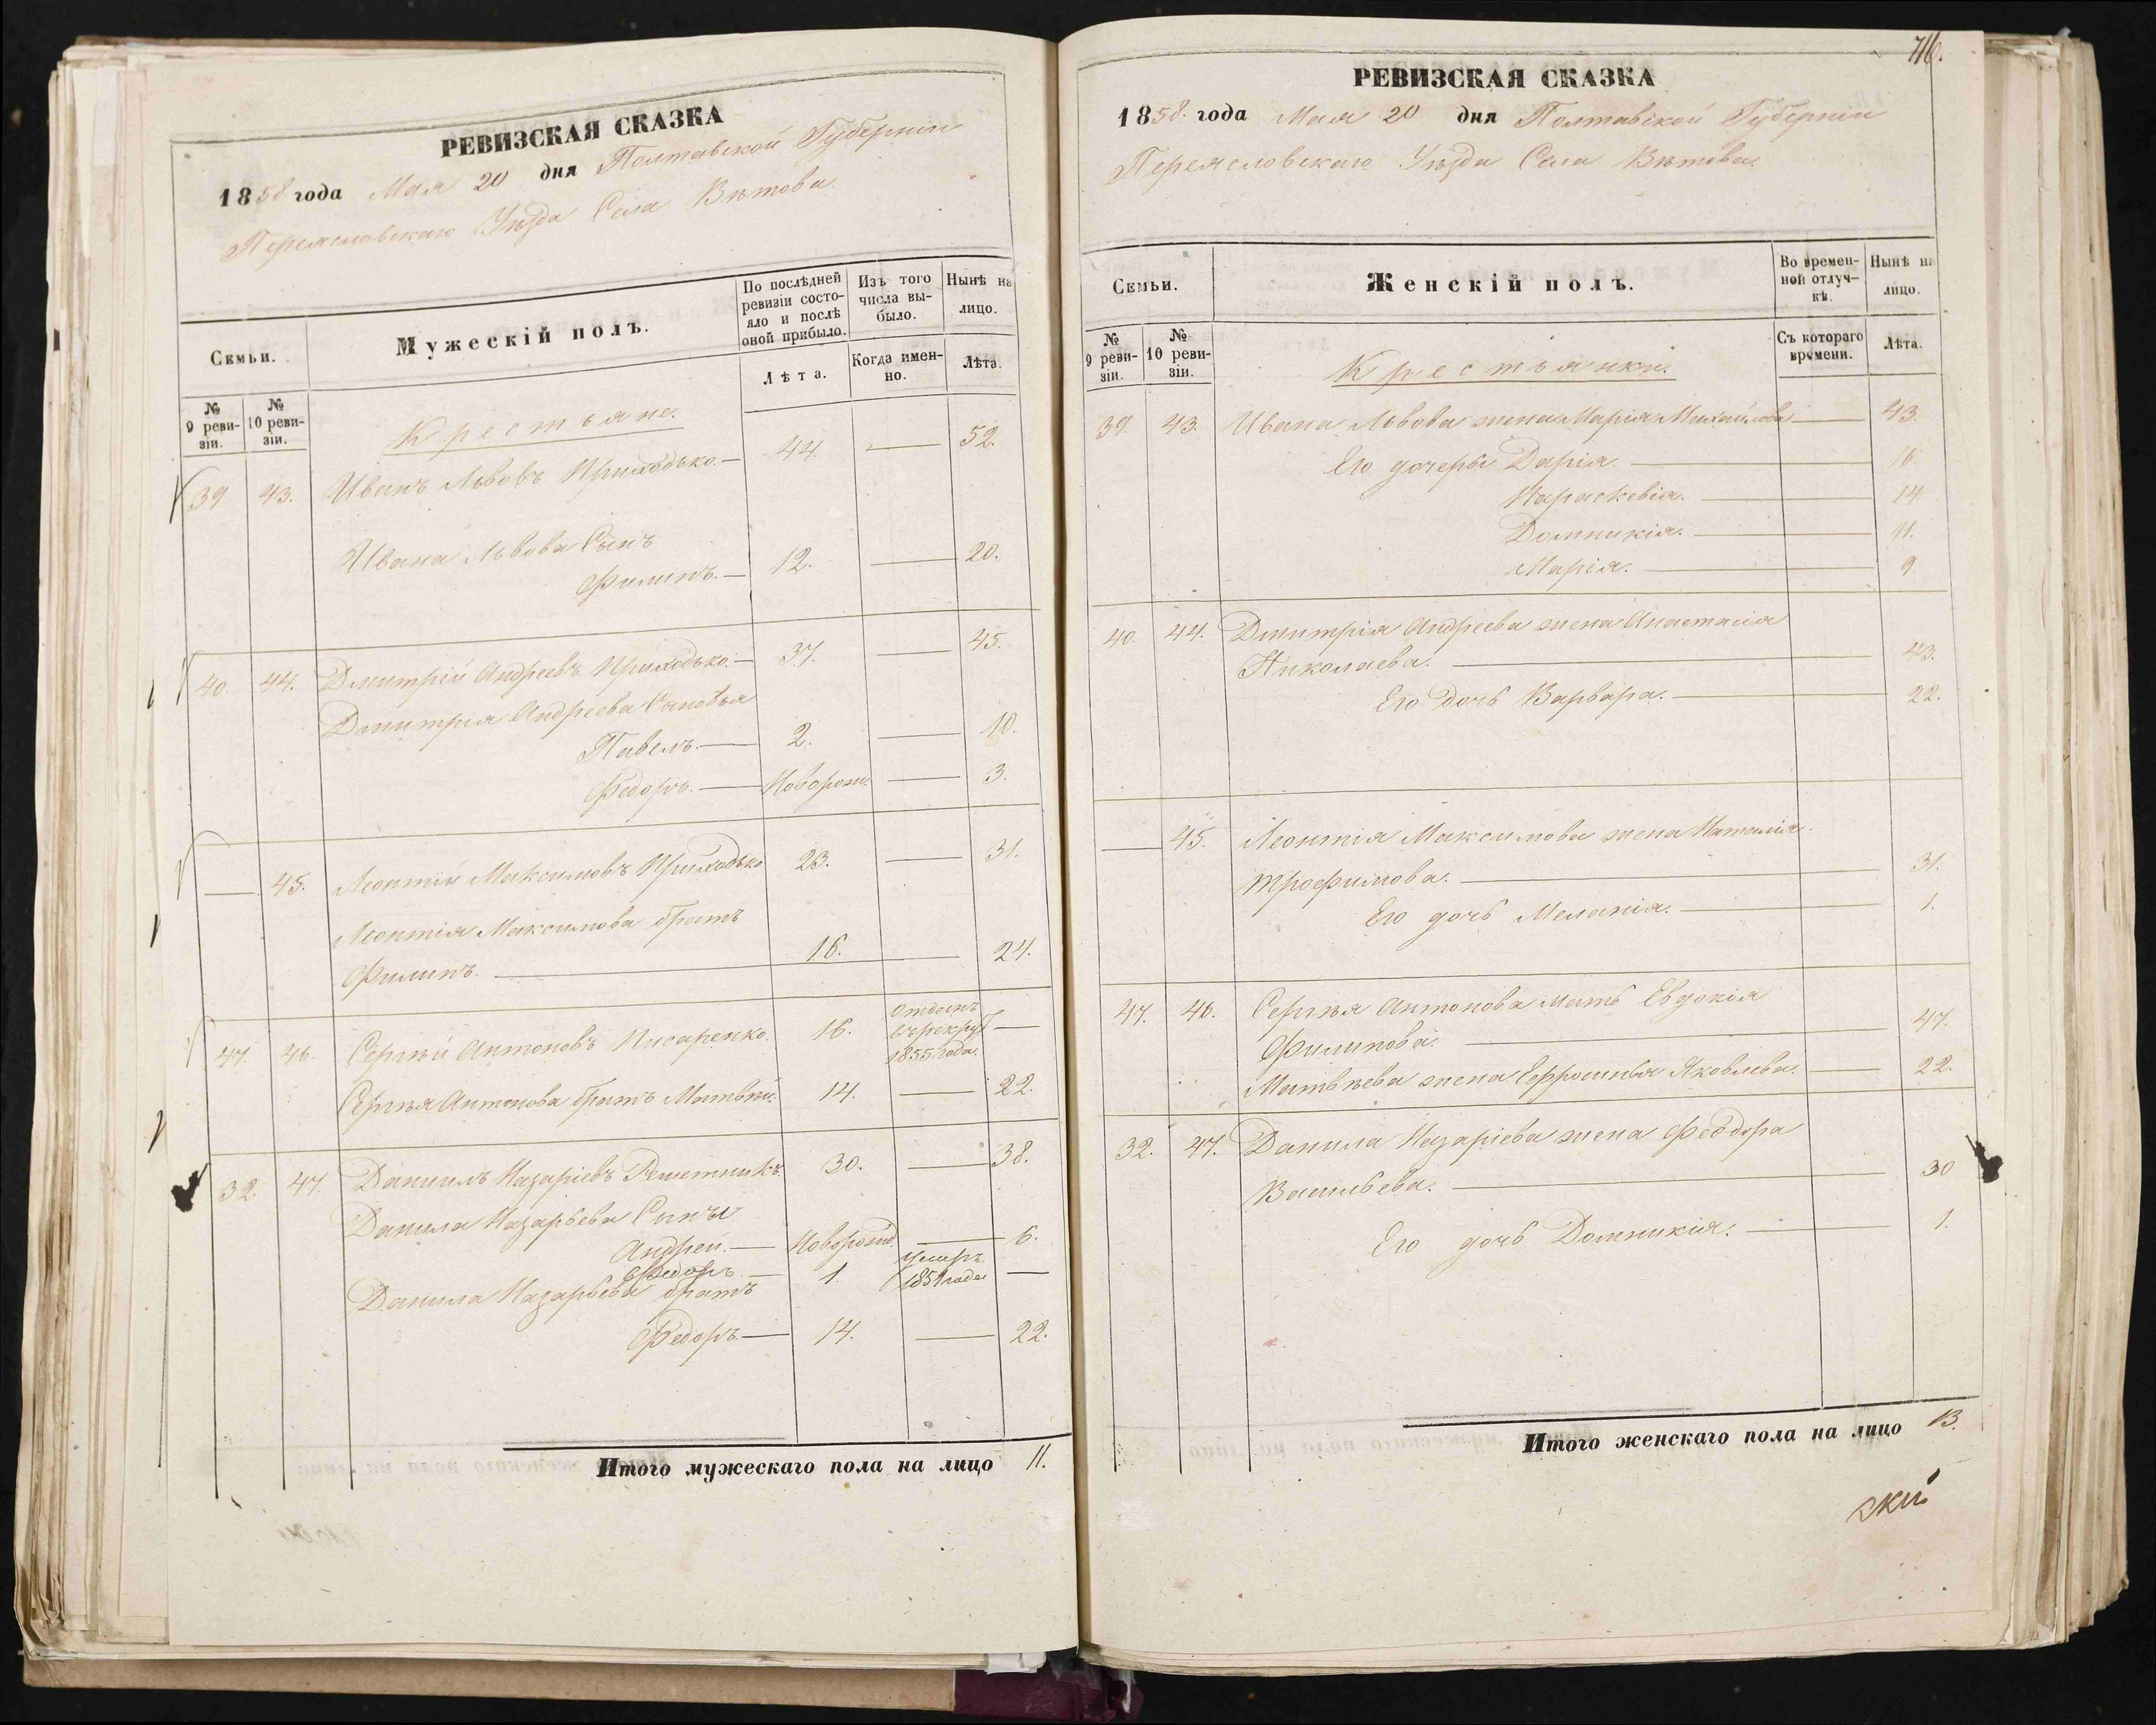 РЕВИЗСКАЯ СКАЗКА
1858 года Мая 20 дня Полтавской Губерніи
Переясловскаго Уѣзда Села Вѣтова.
Семьи.
Мужескій полъ.
По послѣдней ревизіи состояло и послѣ оной прибыло.
Изъ того числа выбыло.
Нынѣ на лицо.
№ 9 ревизіи.
№ 10 ревизіи.
Лѣта.
Когда именно.
Лѣта.
Крестьяне.
39 43. Иванъ Львовъ Приходько.— 44. — 52.
Ивана Львова Сынъ
Филипъ.— 12. — 20.
40. 44. Дмитрій Андреевъ Приходько.— 37. — 45.
Дмитрія Андреева Сыновья
Павелъ.— 2. — 10.
Федоръ.— Новорож. — 3.
— 45. Леонтій Максимовъ Приходько 23. — 31.
Леонтія Максимова братъ
Филипъ. — 16. — 24.
47. 46. Сергѣй Антоновъ Писаренко. 16. Отданъ въ рекрут 1855 года. —
Сергѣя Антонова братъ Матвѣй. 14. — 22.
32. 47. Даніилъ Назаріевъ Решетникъ. 30. — 38.
Данила Назарьева Сыны
Андрей.— Новорожд. — 6.
Федоръ.— 1. умеръ 1851 года —
Данила Назарьева братъ
Федоръ— 14. — 22.
Итого мужескаго пола на лицо 11.
716.
РЕВИЗСКАЯ СКАЗКА
1858 года Мая 20 дня Полтавской Губерніи
Переясловскаго Уѣзда Села Вѣтова.
Семьи.
Женскій полъ.
Во временной отлучкѣ.
Нынѣ на лицо.
№ 9 ревизіи.
№ 10 ревизіи.
Съ котораго времени.
Лѣта.
Крестьянки.
39. 43. Ивана Львова жена Марія Михайлова — 43.
Его дочеры Дарія. — 16.
Параскевія. — 14.
Домникія. — 11.
Марія. — 9.
40. 44. Дмитрія Андреева жена Анастасія
Николаева. — 43.
Его дочь Варвара. — 22.
— 45. Леонтія Максимова жена Наталія
Трофимова. — 31.
Его дочь Меланія. — 1.
47. 46. Сергѣя Антонова мать Евдокія
Филипова. — 47.
Матвѣева жена Ефросинья Яковлева. — 22.
32. 47. Данила Назаріева жена Феодора
Васильева. — 30
Его дочь Домникія. — 1.
Итого женскаго пола на лицо 13.
скій